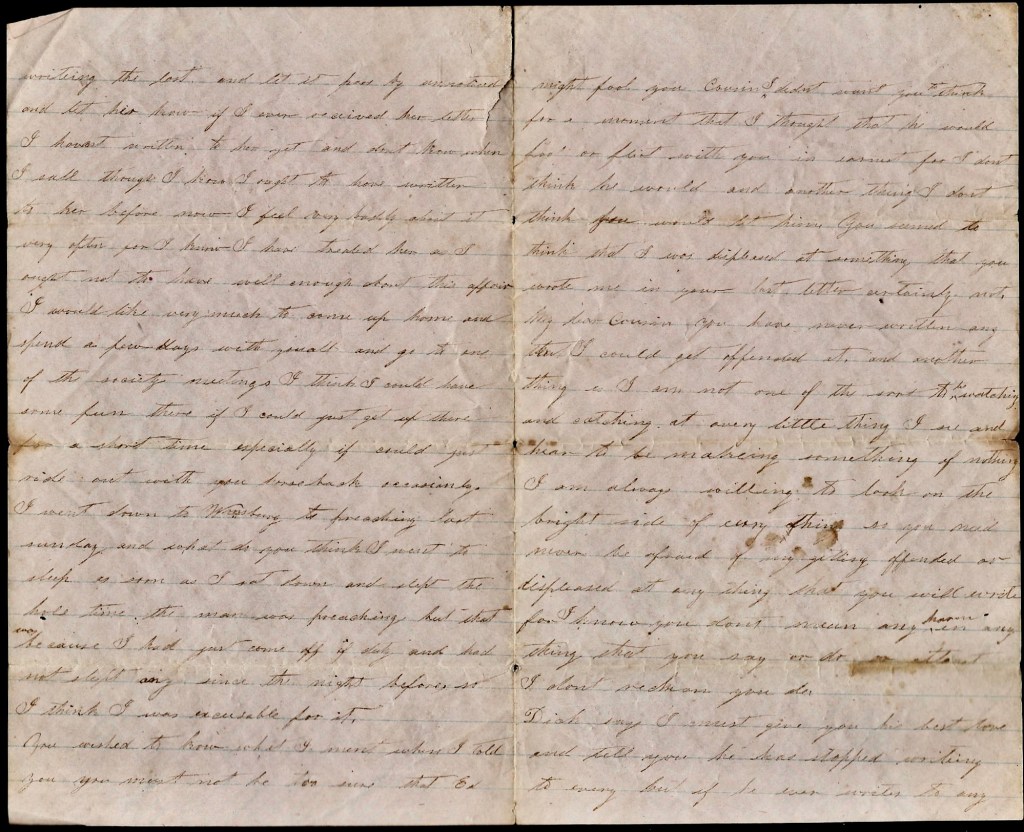 writeing the last and let it pass by unnoticed
and let her know if I ever received her letter
I havent written to her yet and dont know when
I sall though I know I ought to have written
to her before now I feel very badly about it
very often for I know I have treated her as I
ought not to have well enough about this affair
I would like very much to come up home and
spend a few days with youall and go to one
of the society meetings I think I could have
some fun there if I could just get up there
for a short time especially if could just
ride out with you horseback occasionly.
I went down to to preaching last
sunday and what do you think I went to
sleep as soon as I sat down and slept the
hole time the man was preaching but that
was because I had just come off of duty and had
not slept any since the night before so
I think I was excusable for it.
You wished to know what I ment when I told
you you must not be too sure that Ed
might fool you Cousin I didnt want you to think
for a moment that I thought that he would
foo or flirt with you in earnest for I dont
think he would and another thing I dont
think you would let him. You seemed to
think that I was displeased at something that you
wrote me in your last letter certainly not.
My dear Cousin you have never written any
thing I could get offended at. and another
thing is I am not one of the sort to be watching
and catching at every little thing I see and
hear to be makeing something of nothing
I am always willing to look on the
bright side of every thing so you need
never be afraid of my giting offended or
displeased at any thing that you will write
for I know you dont mean any harm in any
thing that you say or do or atleast
I dont reckon you do.
Dick says I must give you his best love
and tell you he has stopped writing
to every but if he ever writes to any